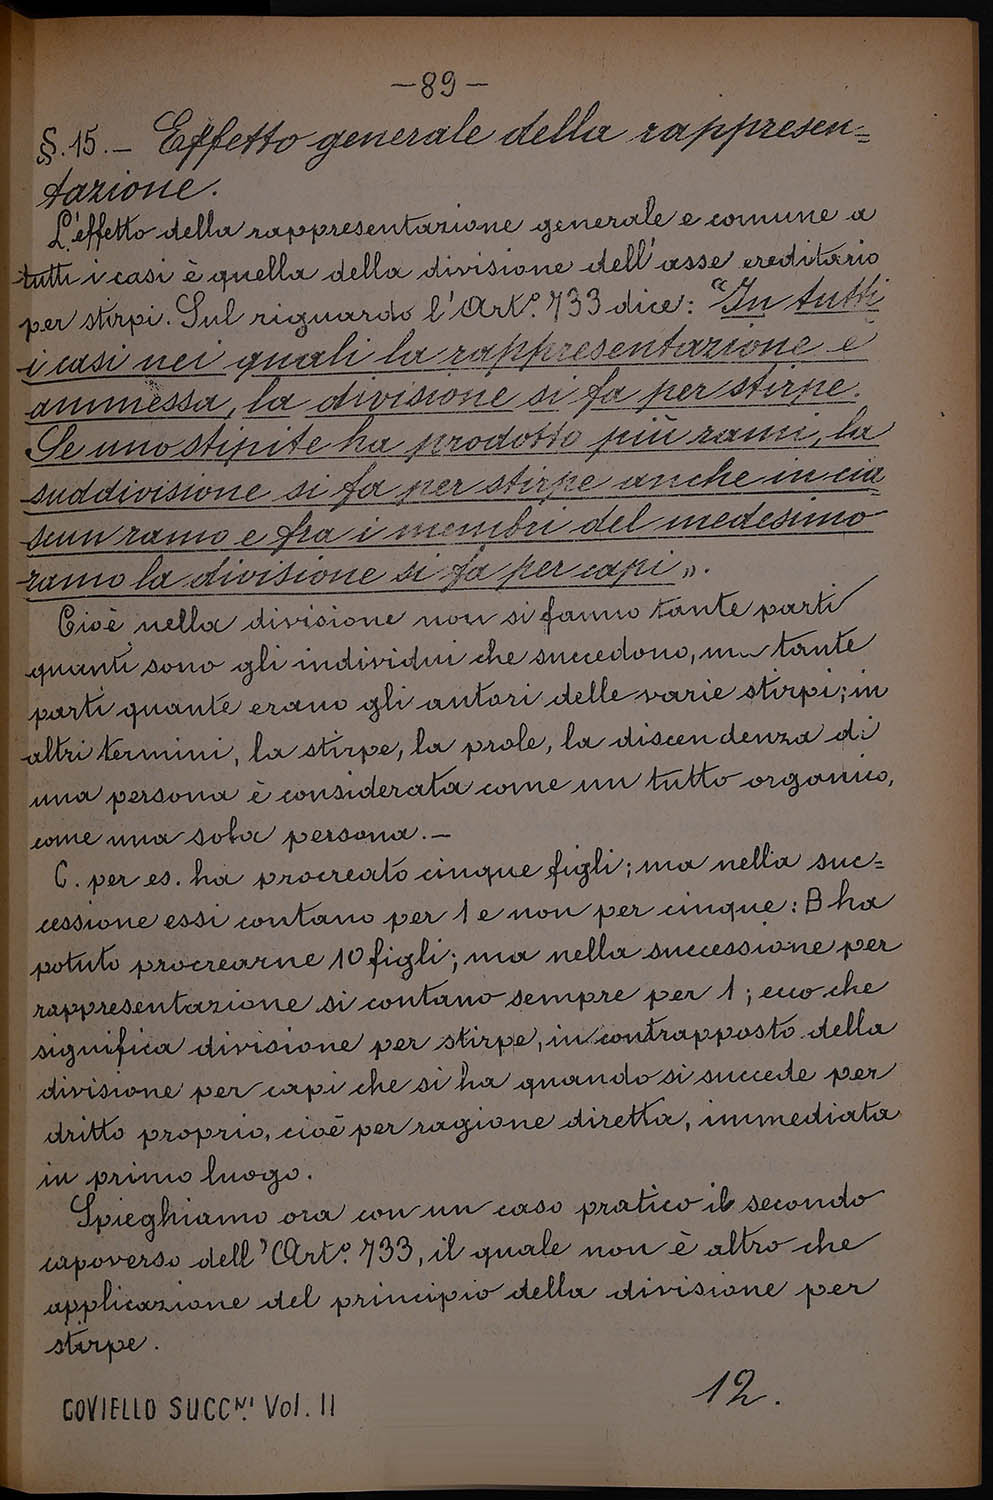 —89—
§. 15. — Effetto generale della rappresen=
tazione.
L'effetto della rappresentazione generale e comune a
tutti i casi è quella della divisione dell'asse ereditario
per stirpi. Sul riguardo l'Art.º 733 dice: "In tutti
i casi nei quali la rappresentazione è
ammessa, la divisione si fa per stirpe.
Se uno stipite ha prodotto più rami, la
suddivisione si fa per stirpe anche in cia
scun ramo e fra i membri del medesimo
ramo la divisione si fa per capi».
Cioè nella divisione non si fanno tante parti
quanti sono gli individui che succedono, ma tante
parti quante erano gli autori delle varie stirpi; in
altri termini, la stirpe, la prole, la discendenza di
una persona è considerata come un tutto organico,
come una sola persona. —
C. per es. ha procreato cinque figli; ma nella suc=
cessione essi contano per 1 e non per cinque: B ha
potuto procrearne 10 figli; ma nella successione per
rappresentazione si contano sempre per 1; ecco che
significa divisione per stirpe, in contrapposto della
divisione per capi che si ha quando si succede per
dritto proprio, cioè per ragione diretta, immediata
in primo luogo.
Spieghiamo ora con un caso pratico il secondo
capoverso dell'Art.º 733, il quale non è altro che
applicazione del principio della divisione per
stirpe.
COVIELLO SUCCNI. Vol. II
12.